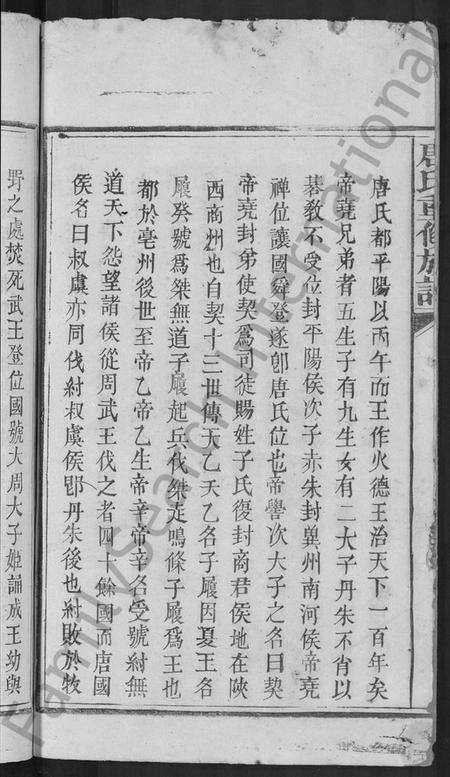 唐氏重修族譜
唐氏都平陽以丙午而王作火德王治天下一百年矣
帝堯兄弟者五生子有九生女有二大子丹朱不肖以
棊教不受位封平陽侯次子赤朱封冀州南河侯帝堯
禅位讓國舜登遂卽唐氏位也帝嚳次大子之名曰契
帝堯封弟使契爲司徒賜姓子氏復封商君侯地在陝
西商州也自契十三世傳天乙天乙名子履因夏王名
履癸號爲桀無道子履起兵伐桀走鳴條子履爲王也
都於亳州後世至帝乙帝乙生帝辛帝辛名受號紂無
道天下怨望諸侯從周武王伐之者四十餘國而唐國
侯名曰叔虞亦同伐紂叔虞侯卽丹朱後也紂敗於牧
野之處焚死武王登位國號大周大子姬誦成王幼與
FamilySearch International